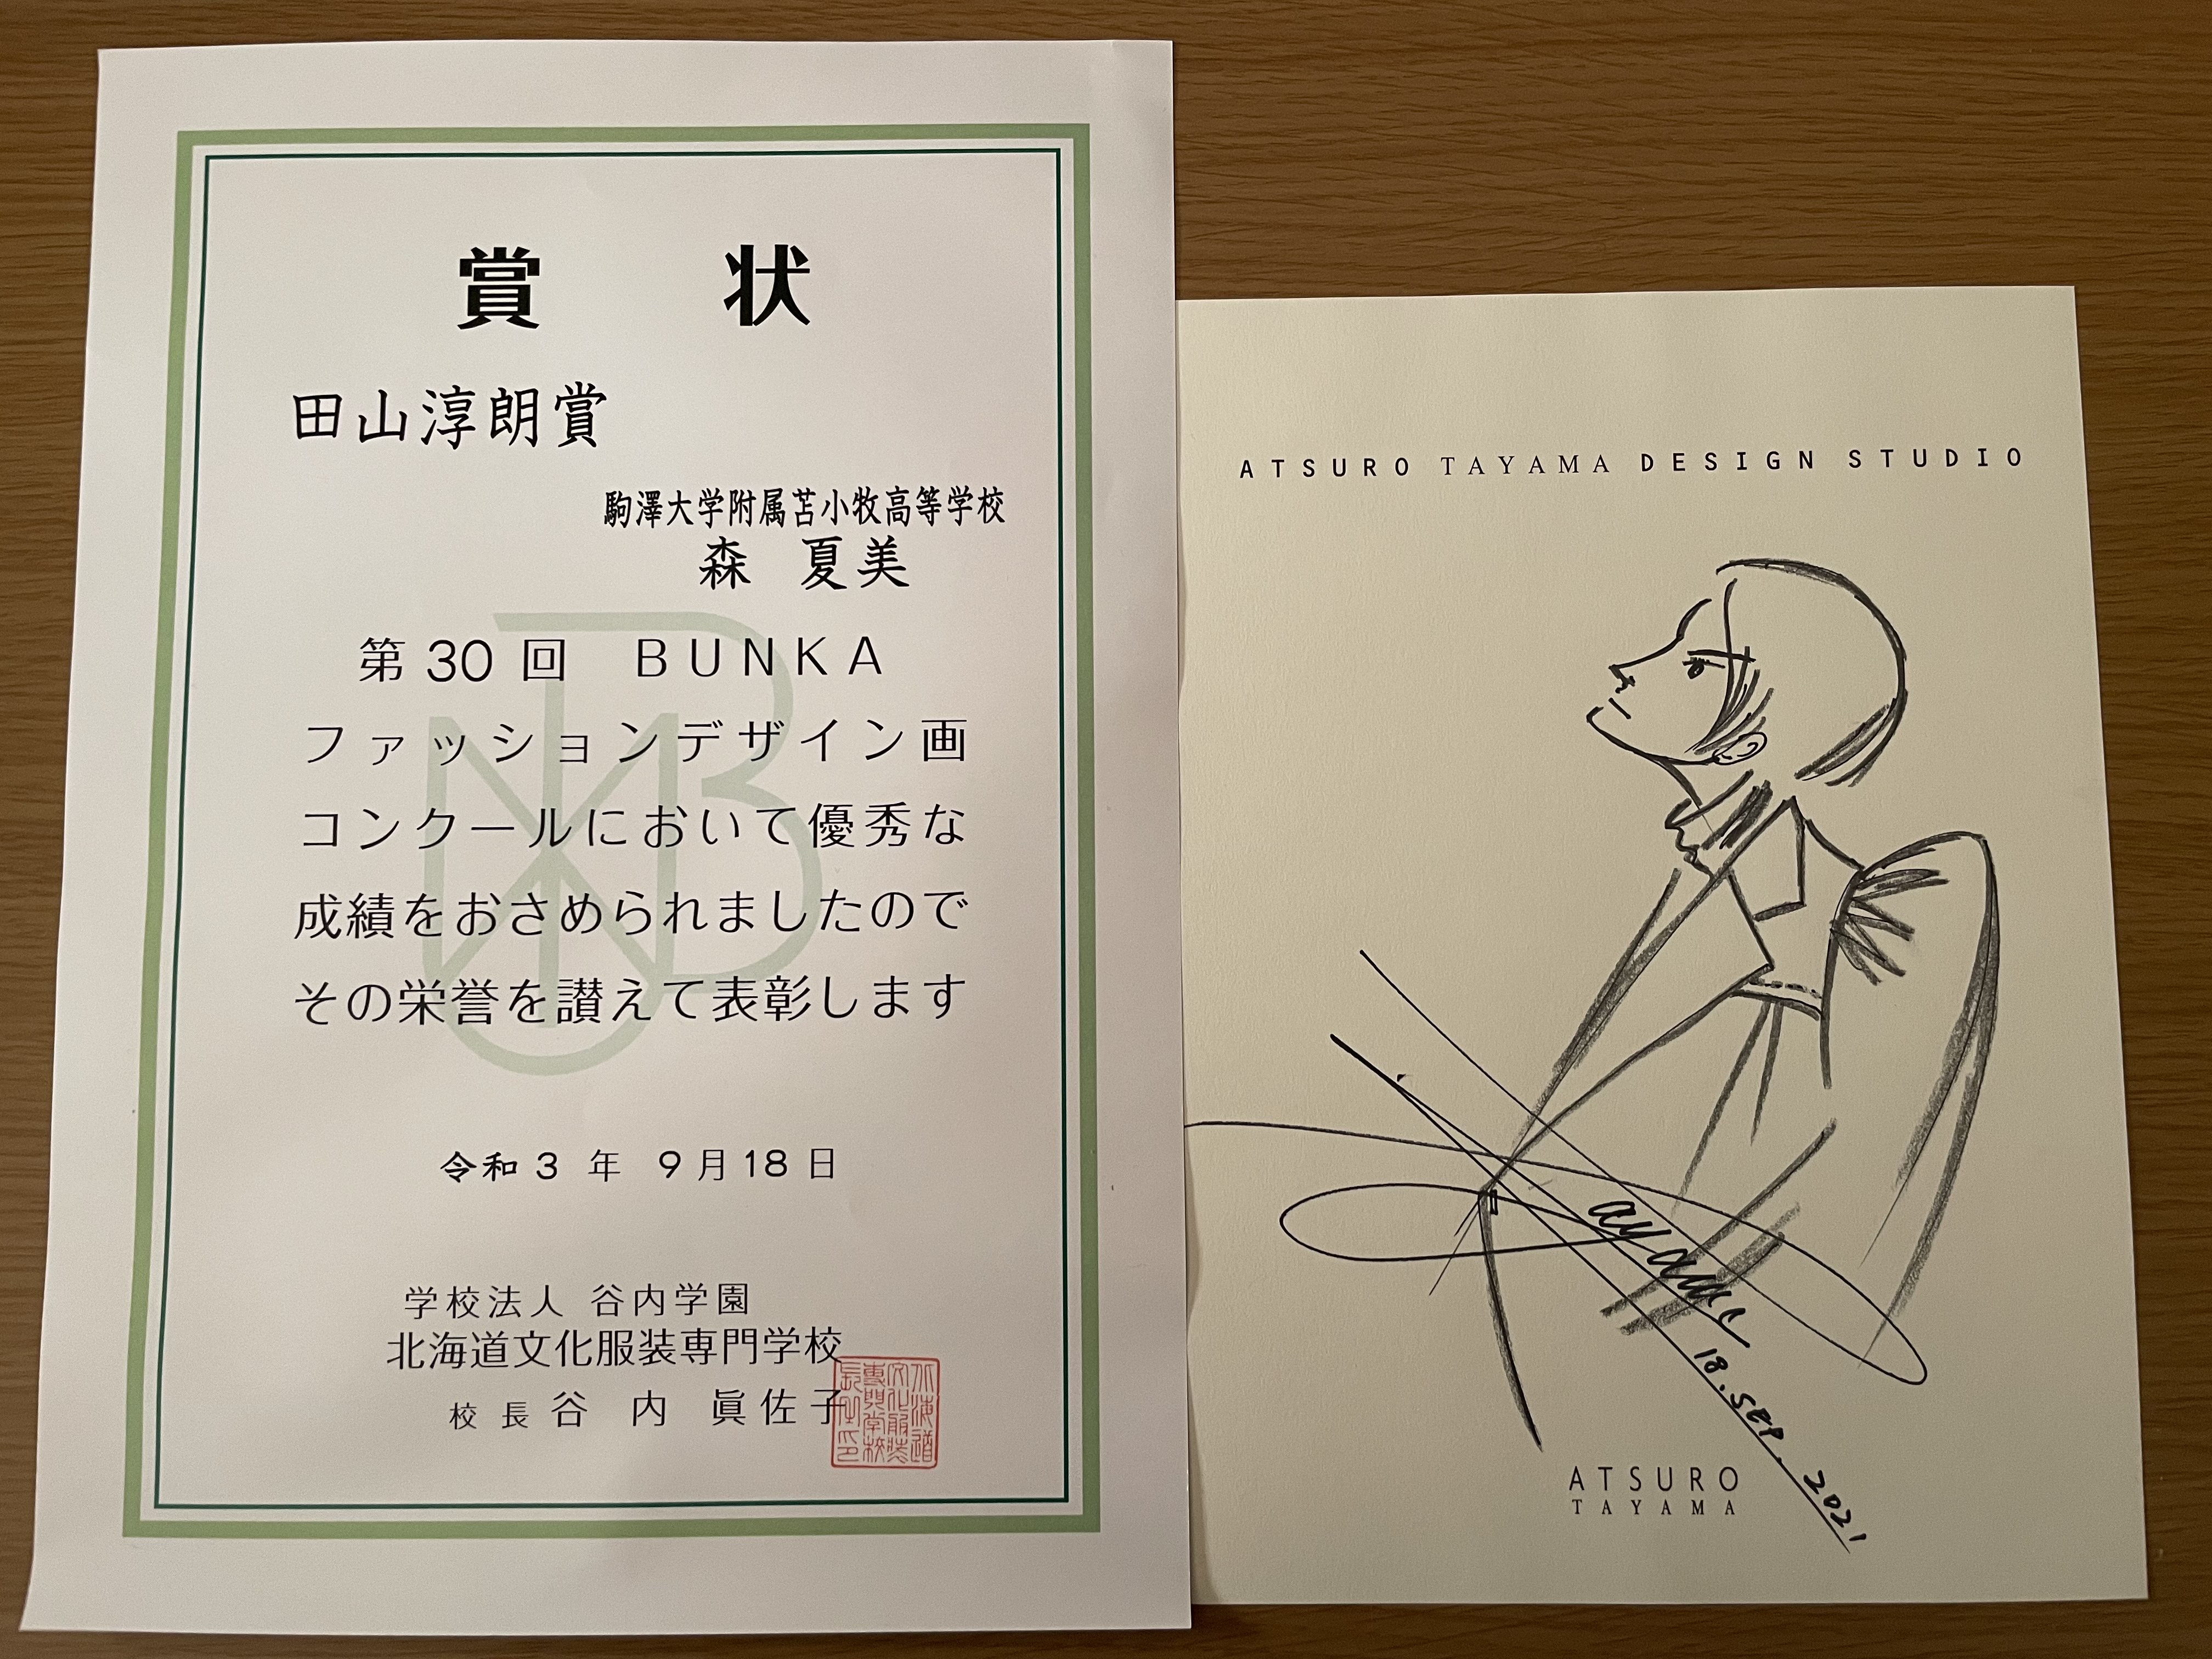 賞 状
田山淳朗賞
駒澤大学附属苫小牧高等学校
森 夏美
第30回 BUNKA
ファッションデザイン画
コンクールにおいて優秀な
成績をおさめられましたので
その栄誉を讃えて表彰します
令和3年 9月18日
学校法人 谷内学園
北海道文化服装専門学校
校長 谷 内 眞佐子
北海道
文化服装
専門学校
長之印
ATSURO TAYAMA DESIGN STUDIO
18.SEP.2021
ATSURO
TAYAMA